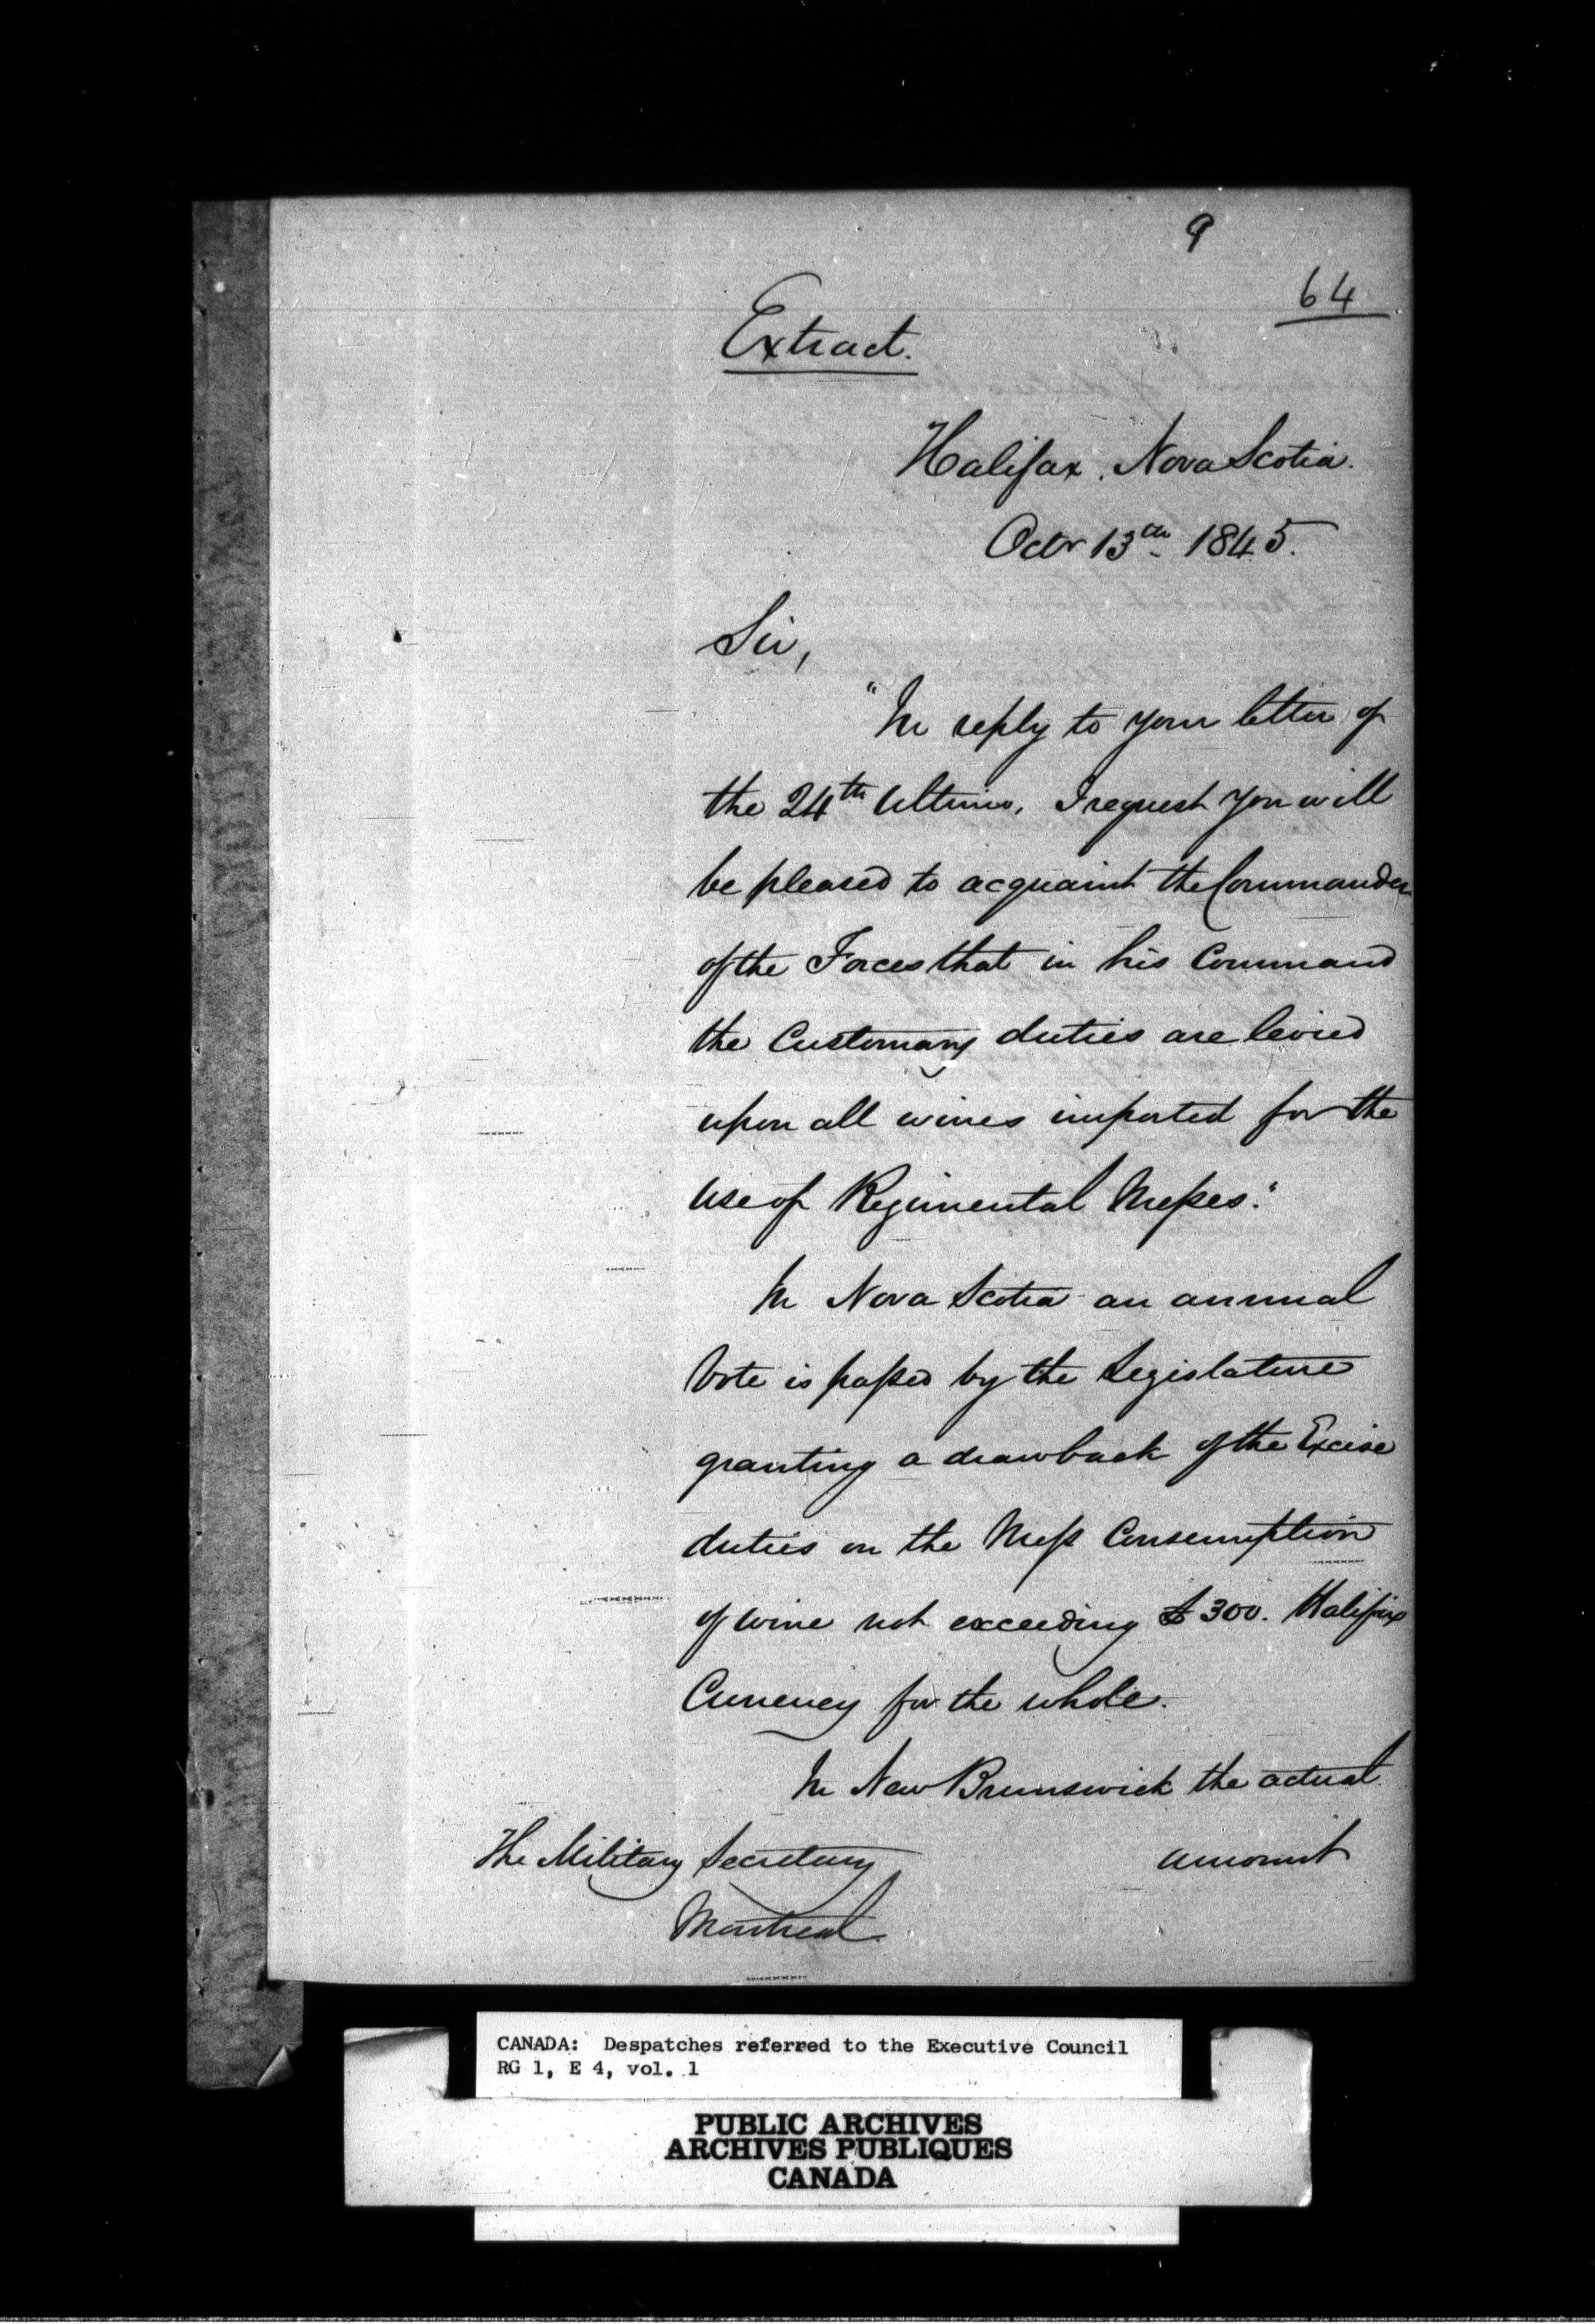 9
64
Extract.
Halifax, Nova Scotia.
Octr 13th 1845.
Sir,
"In reply to your letter of
the 24th Ultimo, I request you will
be pleased to acquaint the Commander
of the Forces that in his Command
the Customary duties are levied
upon all wines imported for the
use of Regimental Messes."
In Nova Scotia an annual
Vote is passed by the Legislature
granting a drawback of the Excise
duties on the Mess Consumption
of wine not exceeding £300. Halifax
Currency for the whole.
In New Brunswick the actual
The Military Secretary amount
Montreal
CANADA: Despatches referred to the Executive Council
RG 1, E 4, vol. 1
PUBLIC ARCHIVES
ARCHIVES PUBLIQUES
CANADA